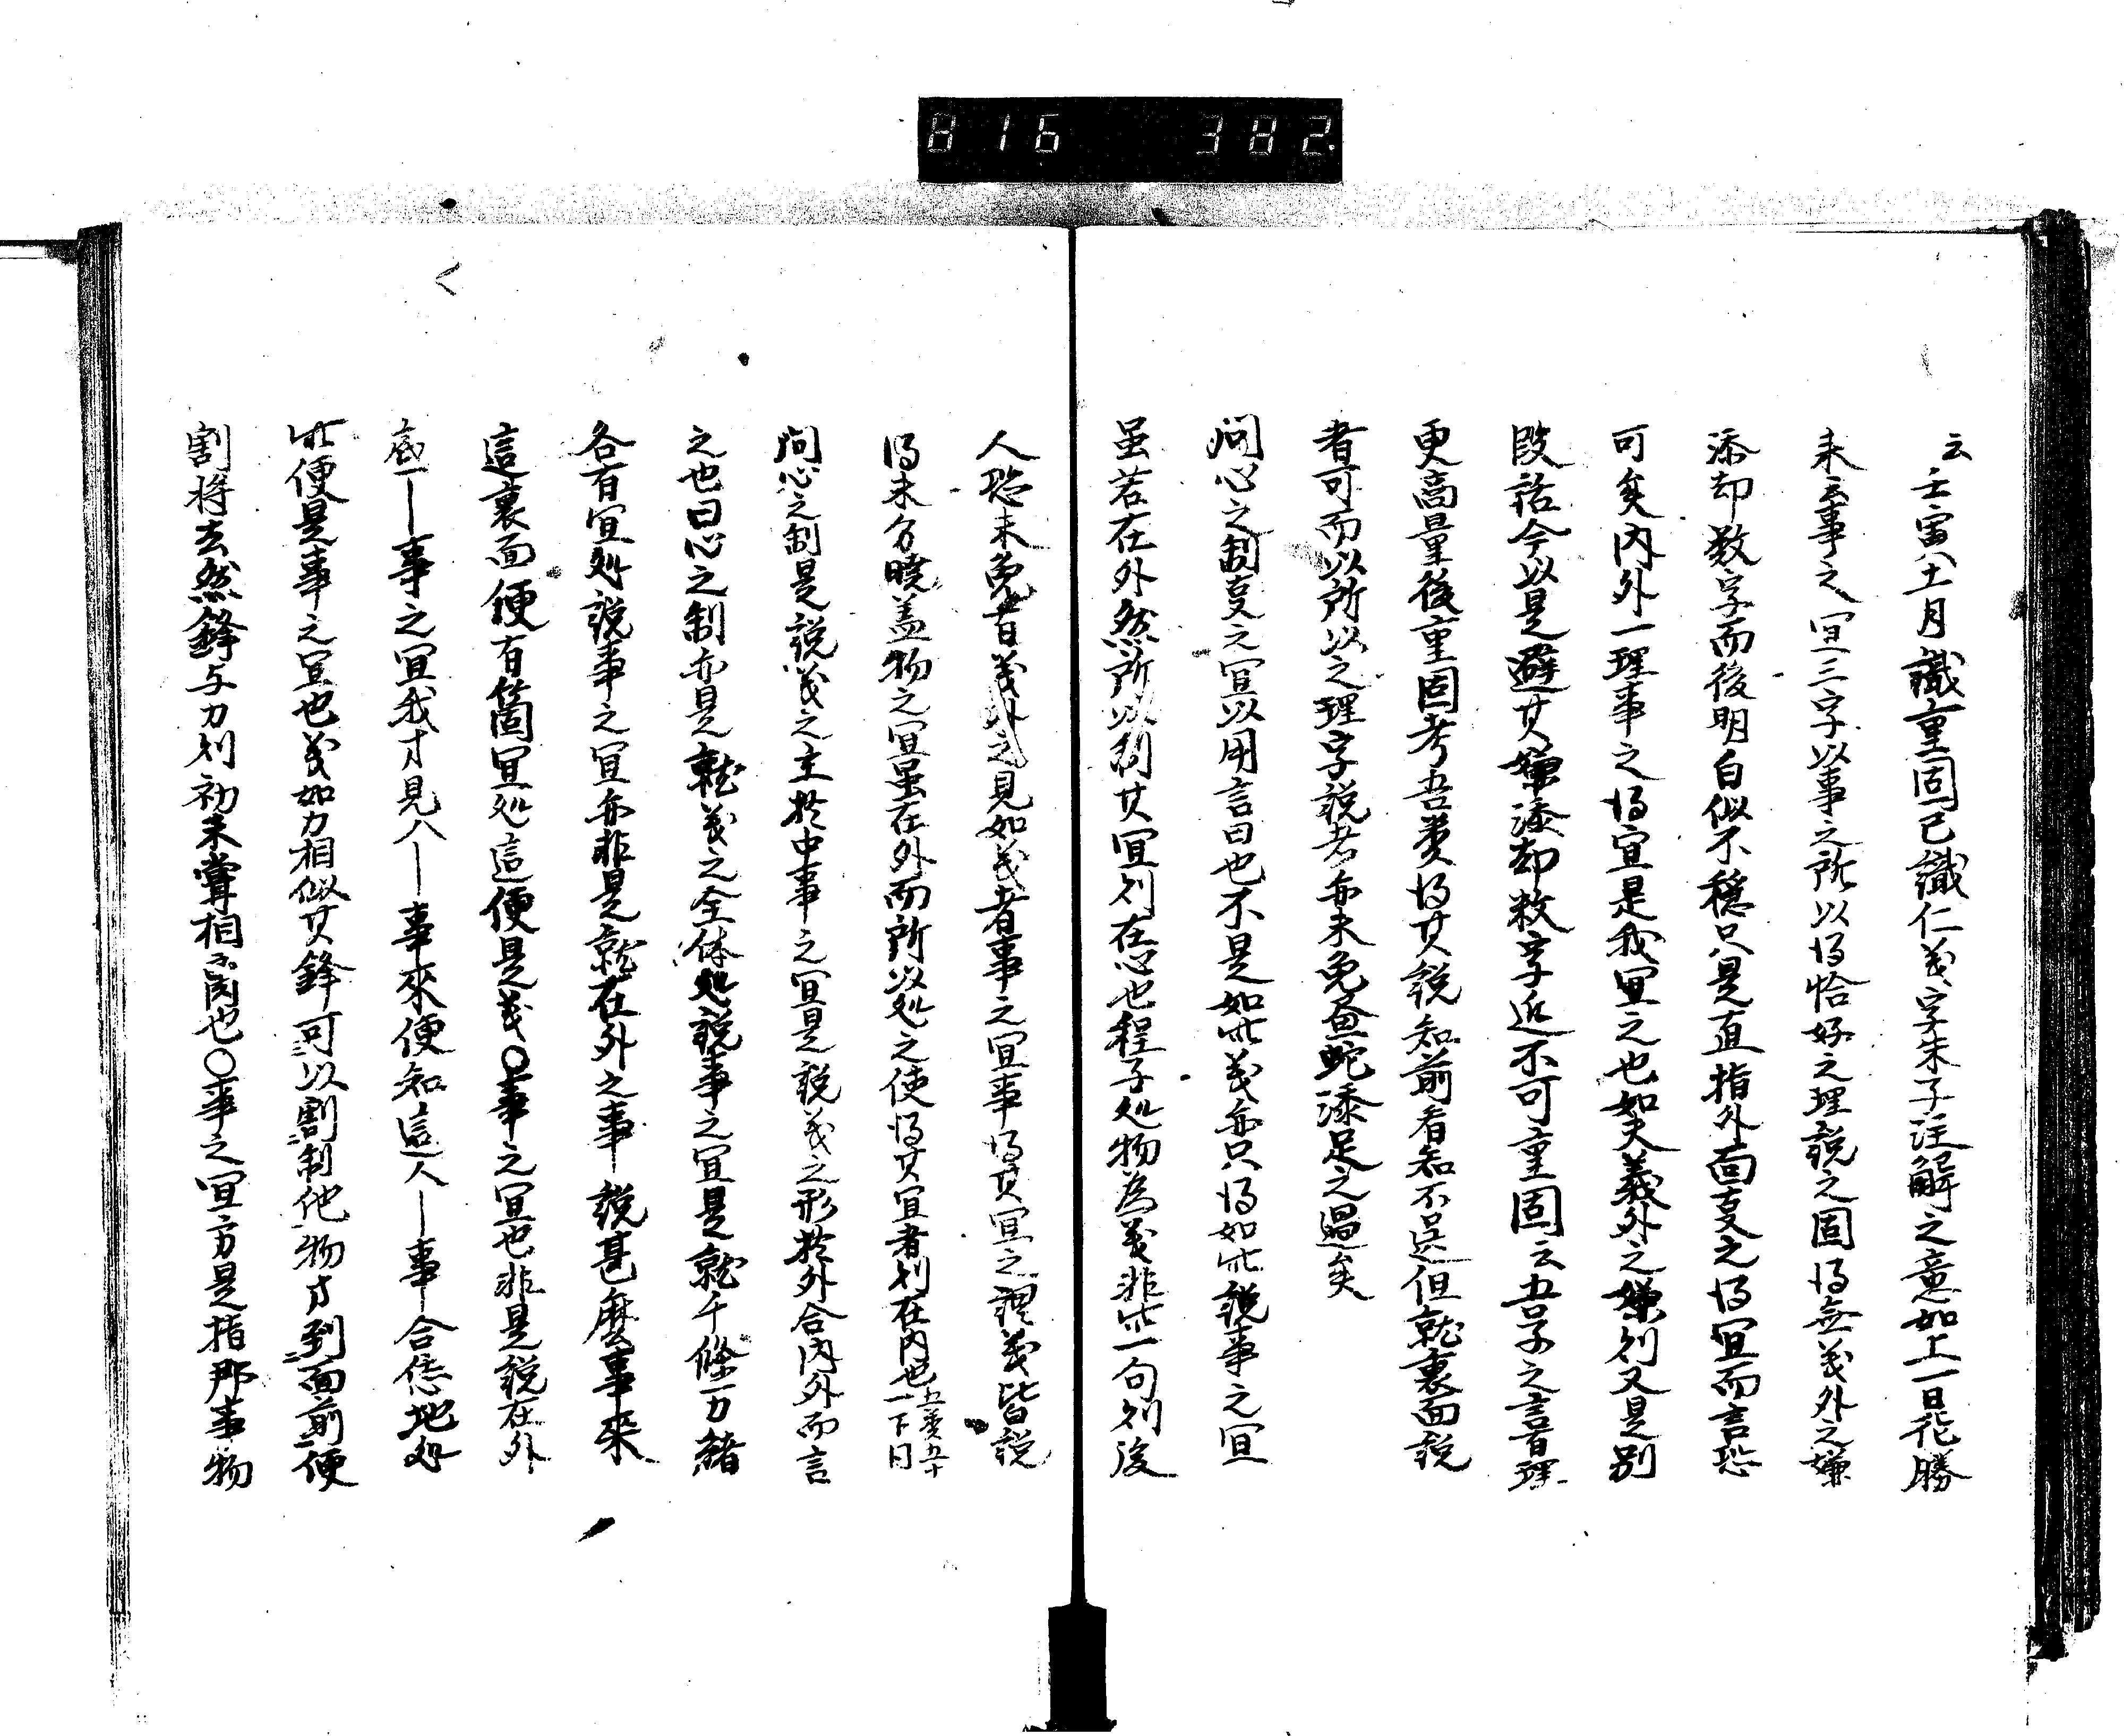 816 382.
云壬寅八十一月識重固已識仁義字朱子注解之意如上一日花勝
未云事之宜三字以事之所以得恰好之理説之固得無義外之嫌
添却数字而後明白似不穏只是直指外面叓之得宜而言恐
可矣内外一理事之得宜是我宜之也如夫義外之嫌則又是別
段話今以是避其嫌添却数字返不可重固云吾子之言有理
更商量後重固考吾黌得其説知前看知不逞但就裏面説
者可而以所以之理字説者亦未免画蛇添足之過矣
問心之制叓之宜以用言曰也不是如此義亦只得如此説事之宜
虽若在外然所以制其宜則在心也程子処物為義非此一句則後
人恐未免昔義外之見如義者事之宜事得其宜之謂義皆説
得未分暁盖物之宜虽在外而所以処之使得其宜者則在内也
問心之制是説義之主於中事之宜是説義之形於外合内外而言
之也曰心之制亦是就義之全体処説事之宜是就千條万緒
各有宜処説事之宜亦非是就在外之事説甚麼事來
這裏面便有箇宜処這便是義○事之宜也非是説在外
底一｜事之宜我才見八｜事來便知這人｜事合恁地処
此便是事之宜也義如刀相似其鋒可以割制他物才到面前便
割将去然鋒与刀則初未嘗相离也○事之宜方是指那事物